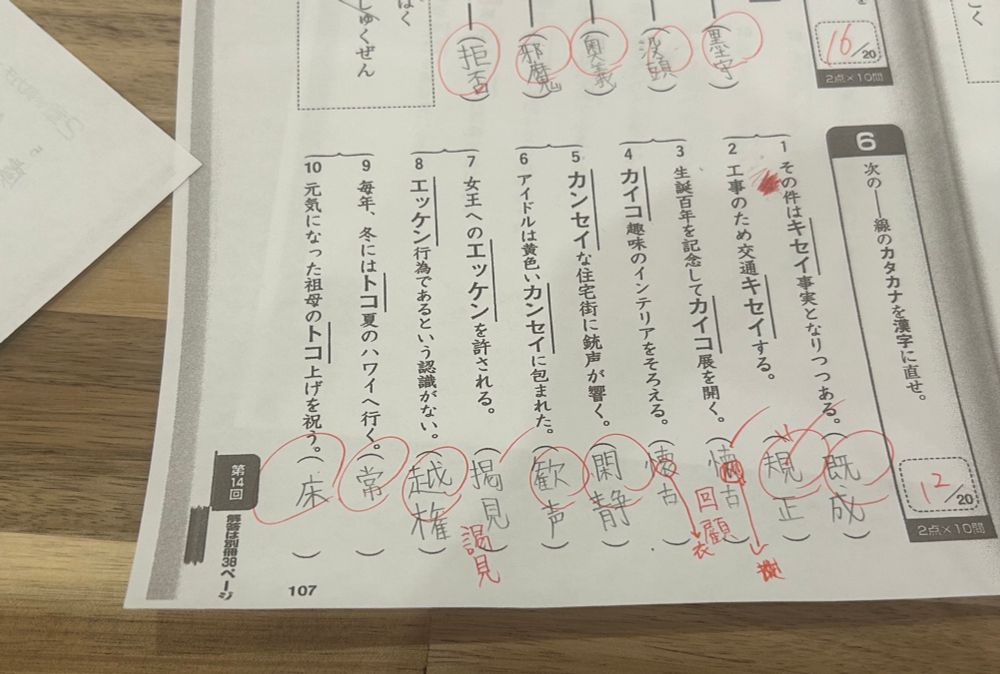 しゅくぜん
(拒否)
(邪魔)
(奥義)
(没頭)
(墨守)
16/20
2点×10問
6
次の――線のカタカナを漢字に直せ。
12/20
2点×10問
1 その件はキセイ事実となりつつある。(既成)
2 工事のため交通キセイする。(規正)
3 生誕百年を記念してカイコ展を開く。(懐古)
回顧
4 カイコ趣味のインテリアをそろえる。(懐古)
衣
5 カンセイな住宅街に銃声が響く。(閑静)
6 アイドルは黄色いカンセイに包まれた。(歓声)
7 女王へのエッケンを許される。(掲見)
謁見
8 エッケン行為であるという認識がない。(越権)
9 毎年、冬にはトコ夏のハワイへ行く。(常)
10 元気になった祖母のトコ上げを祝う。(床)
第14回
解答は別冊38ページ
107